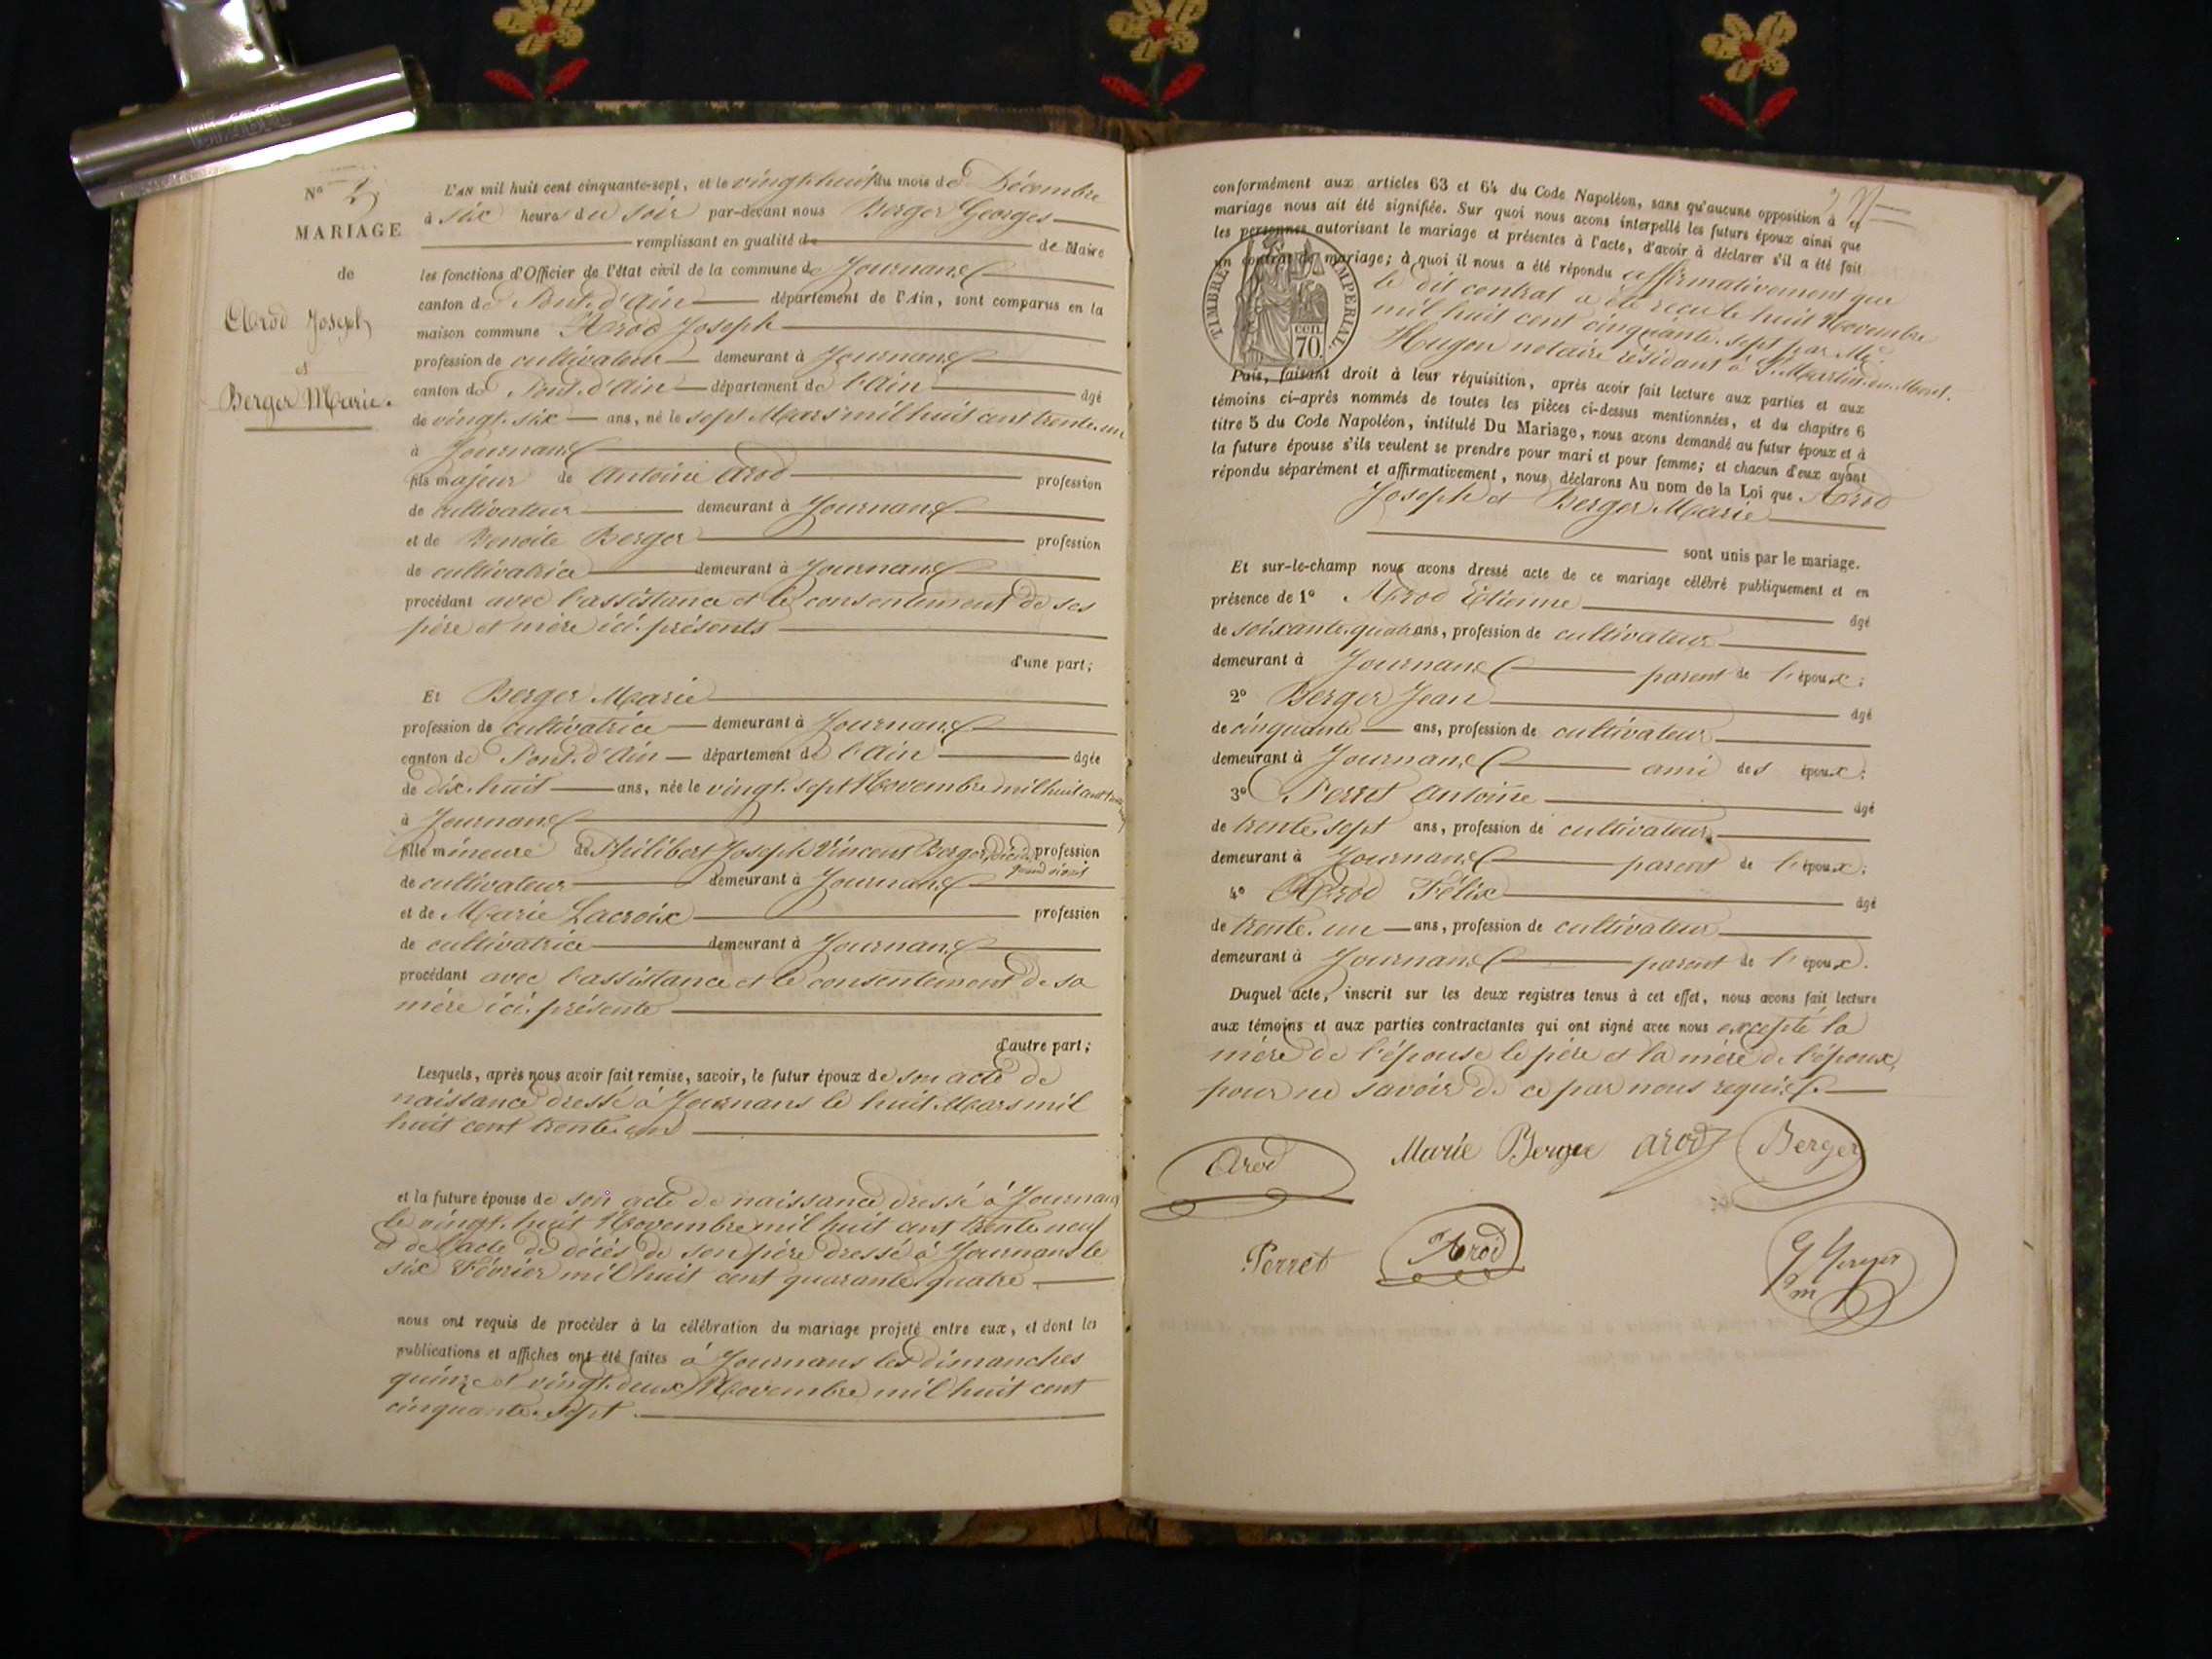 N° 3
MARIAGE
de
Arod Joseph
et
Berger Marie.
L'AN mil huit cent cinquante-sept, et le vingt huit du mois de Décembre
à six heures du soir par-devant nous Berger Georges
remplissant en qualité de de Maire
les fonctions d'Officier de l'état civil de la commune de Journans
canton de Pont d'Ain département de l'Ain, sont comparus en la
maison commune Arod Joseph
profession de cultivateur demeurant à Journans
canton de Pont d'Ain département de l'Ain âgé
de vingt six ans, né le sept Mars mil huit cent trente un
à Journans
fils majeur de Antoine Arod profession
de cultivateur demeurant à Journans
et de Benoite Berger profession
de cultivatrice demeurant à Journans
procédant avec l'assistance et le consentement de ses
père et mère ici présents
d'une part;
Et Berger Marie
profession de cultivatrice demeurant à Journans
canton de Pont d'Ain département de l'Ain âgée
de dix huit ans, née le vingt sept Novembre mil huit cent
à Journans
fille mineure de Philibert Joseph Vincent Berger, profession
de cultivateur demeurant à Journans quand vivait
et de Marie Lacroix profession
de cultivatrice demeurant à Journans
procédant avec l'assistance et le consentement de sa
mère ici présente
d'autre part;
Lesquels, après nous avoir fait remise, savoir, le futur époux de son acte de
naissance dressé à Journans le huit Mars mil
huit cent trente un
et la future épouse de son acte de naissance dressé à Journans
le vingt huit Novembre mil huit cent trente neuf
et de l'acte de décès de son père dressé à Journans le
six Février mil huit cent quarante quatre
nous ont requis de procéder à la célébration du mariage projeté entre eux, et dont les
publications et affiches ont été faites à Journans les dimanches
quinze et vingt deux Novembre mil huit cent
cinquante sept.
conformément aux articles 63 et 64 du Code Napoléon, sans qu'aucune opposition à ce
mariage nous ait été signifiée. Sur quoi nous avons interpellé les futurs époux ainsi que
les personnes autorisant le mariage et présentes à l'acte, d'avoir à déclarer s'il a été fait
un contrat de mariage; à quoi il nous a été répondu affirmativement que
le dit contrat a été reçu le huit Novembre
mil huit cent cinquante sept par Me.
Hugon notaire résidant à St. Martin du Mont.
TIMBRE IMPERIAL
cen. 70.
Puis, faisant droit à leur réquisition, après avoir fait lecture aux parties et aux
témoins ci-après nommés de toutes les pièces ci-dessus mentionnées, et du chapitre 6
titre 5 du Code Napoléon, intitulé Du Mariage, nous avons demandé au futur époux et à
la future épouse s'ils veulent se prendre pour mari et pour femme; et chacun d'eux ayant
répondu séparément et affirmativement, nous déclarons Au nom de la Loi que Arod
Joseph et Berger Marie
sont unis par le mariage.
Et sur-le-champ nous avons dressé acte de ce mariage célébré publiquement et en
présence de 1° Arod Etienne âgé
de soixante quatre ans, profession de cultivateur
demeurant à Journans parent de l'époux;
2° Berger Jean âgé
de cinquante ans, profession de cultivateur
demeurant à Journans ami des époux;
3° Perret Antoine âgé
de trente sept ans, profession de cultivateur
demeurant à Journans parent de l'époux;
4° Arod Félix âgé
de trente un ans, profession de cultivateur
demeurant à Journans parent de l'époux.
Duquel acte, inscrit sur les deux registres tenus à cet effet, nous avons fait lecture
aux témoins et aux parties contractantes qui ont signé avec nous excepté la
mère de l'épouse le père et la mère de l'époux,
pour ne savoir de ce par nous requis.
Arod Marie Berger arod Berger
Perret Arod G Berger
m